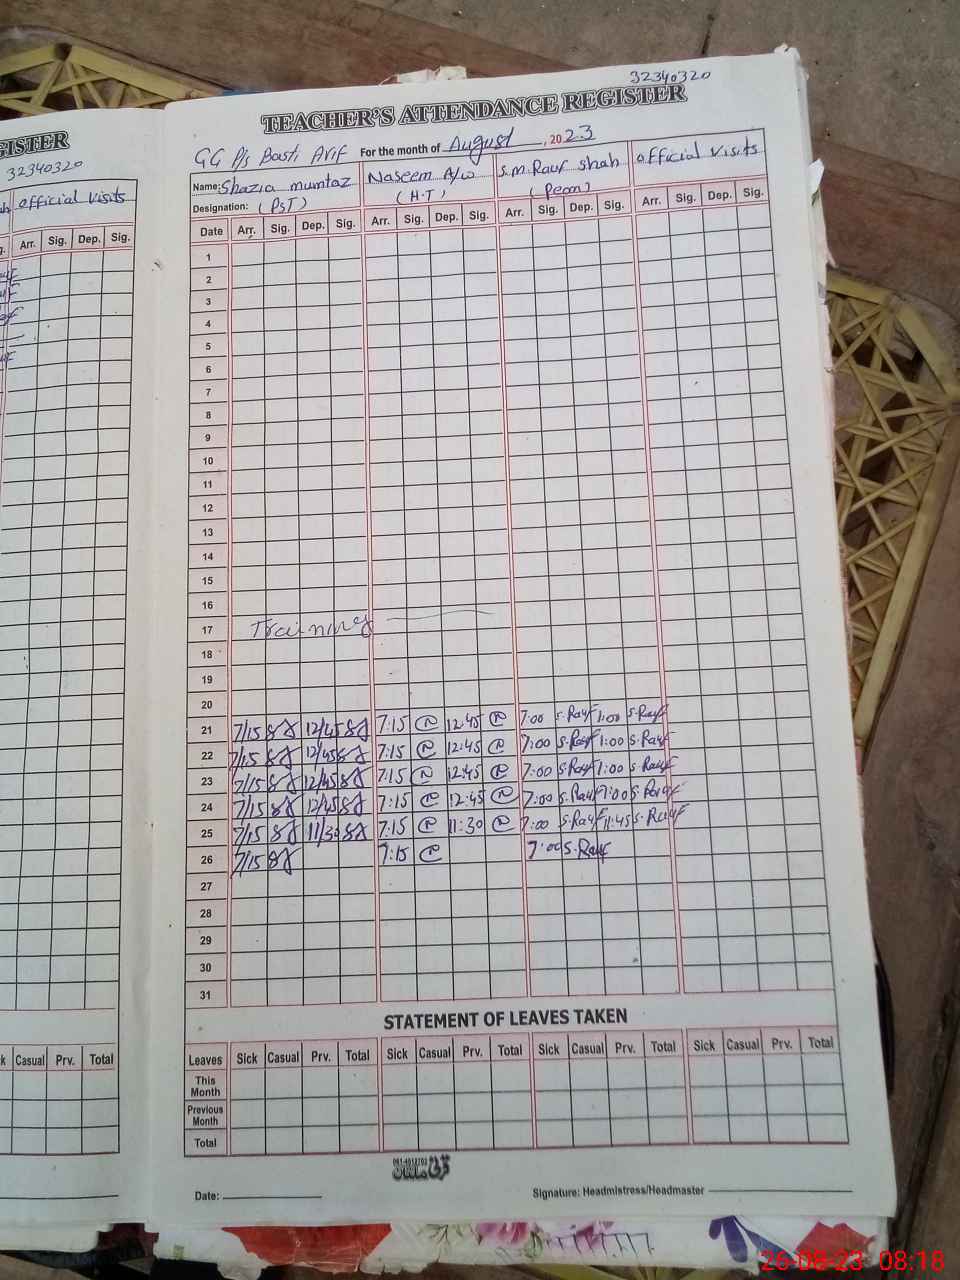 32340320
TEACHER'S ATTENDANCE REGISTER
GG P/s Basti Arif For the month of August, 2023
Name: Shazia mumtaz Naseem A/w S.M.Rauf shah official visits
Designation: (PST) (H.T) (Peon)
Date Arr. Sig. Dep. Sig. Arr. Sig. Dep. Sig. Arr. Sig. Dep. Sig. Arr. Sig. Dep. Sig.
1
2
3
4
5
6
7
8
9
10
11
12
13
14
15
16
17 Training
18
19
20
21 7/15 12/45 7:15 12:45 7:00 S.Rauf 1:00 S.Rauf
22 7/15 12/45 7:15 12:45 7:00 S.Rauf 1:00 S.Rauf
23 7/15 12/45 7:15 12:45 7:00 S.Rauf 1:00 S.Rauf
24 7/15 12/45 7:15 12:45 7:00 S.Rauf 1:00 S.Rauf
25 7/15 11/30 7:15 11:30 7:00 S.Rauf 11:45 S.Rauf
26 7/15 7:15 7:00 S.Rauf
27
28
29
30
31
STATEMENT OF LEAVES TAKEN
Leaves Sick Casual Prv. Total Sick Casual Prv. Total Sick Casual Prv. Total Sick Casual Prv. Total
This Month
Previous Month
Total
Date: Signature: Headmistress/Headmaster
GISTER
32340320
official visits
Arr. Sig. Dep. Sig.
Casual Prv. Total
26-08-23 08:18